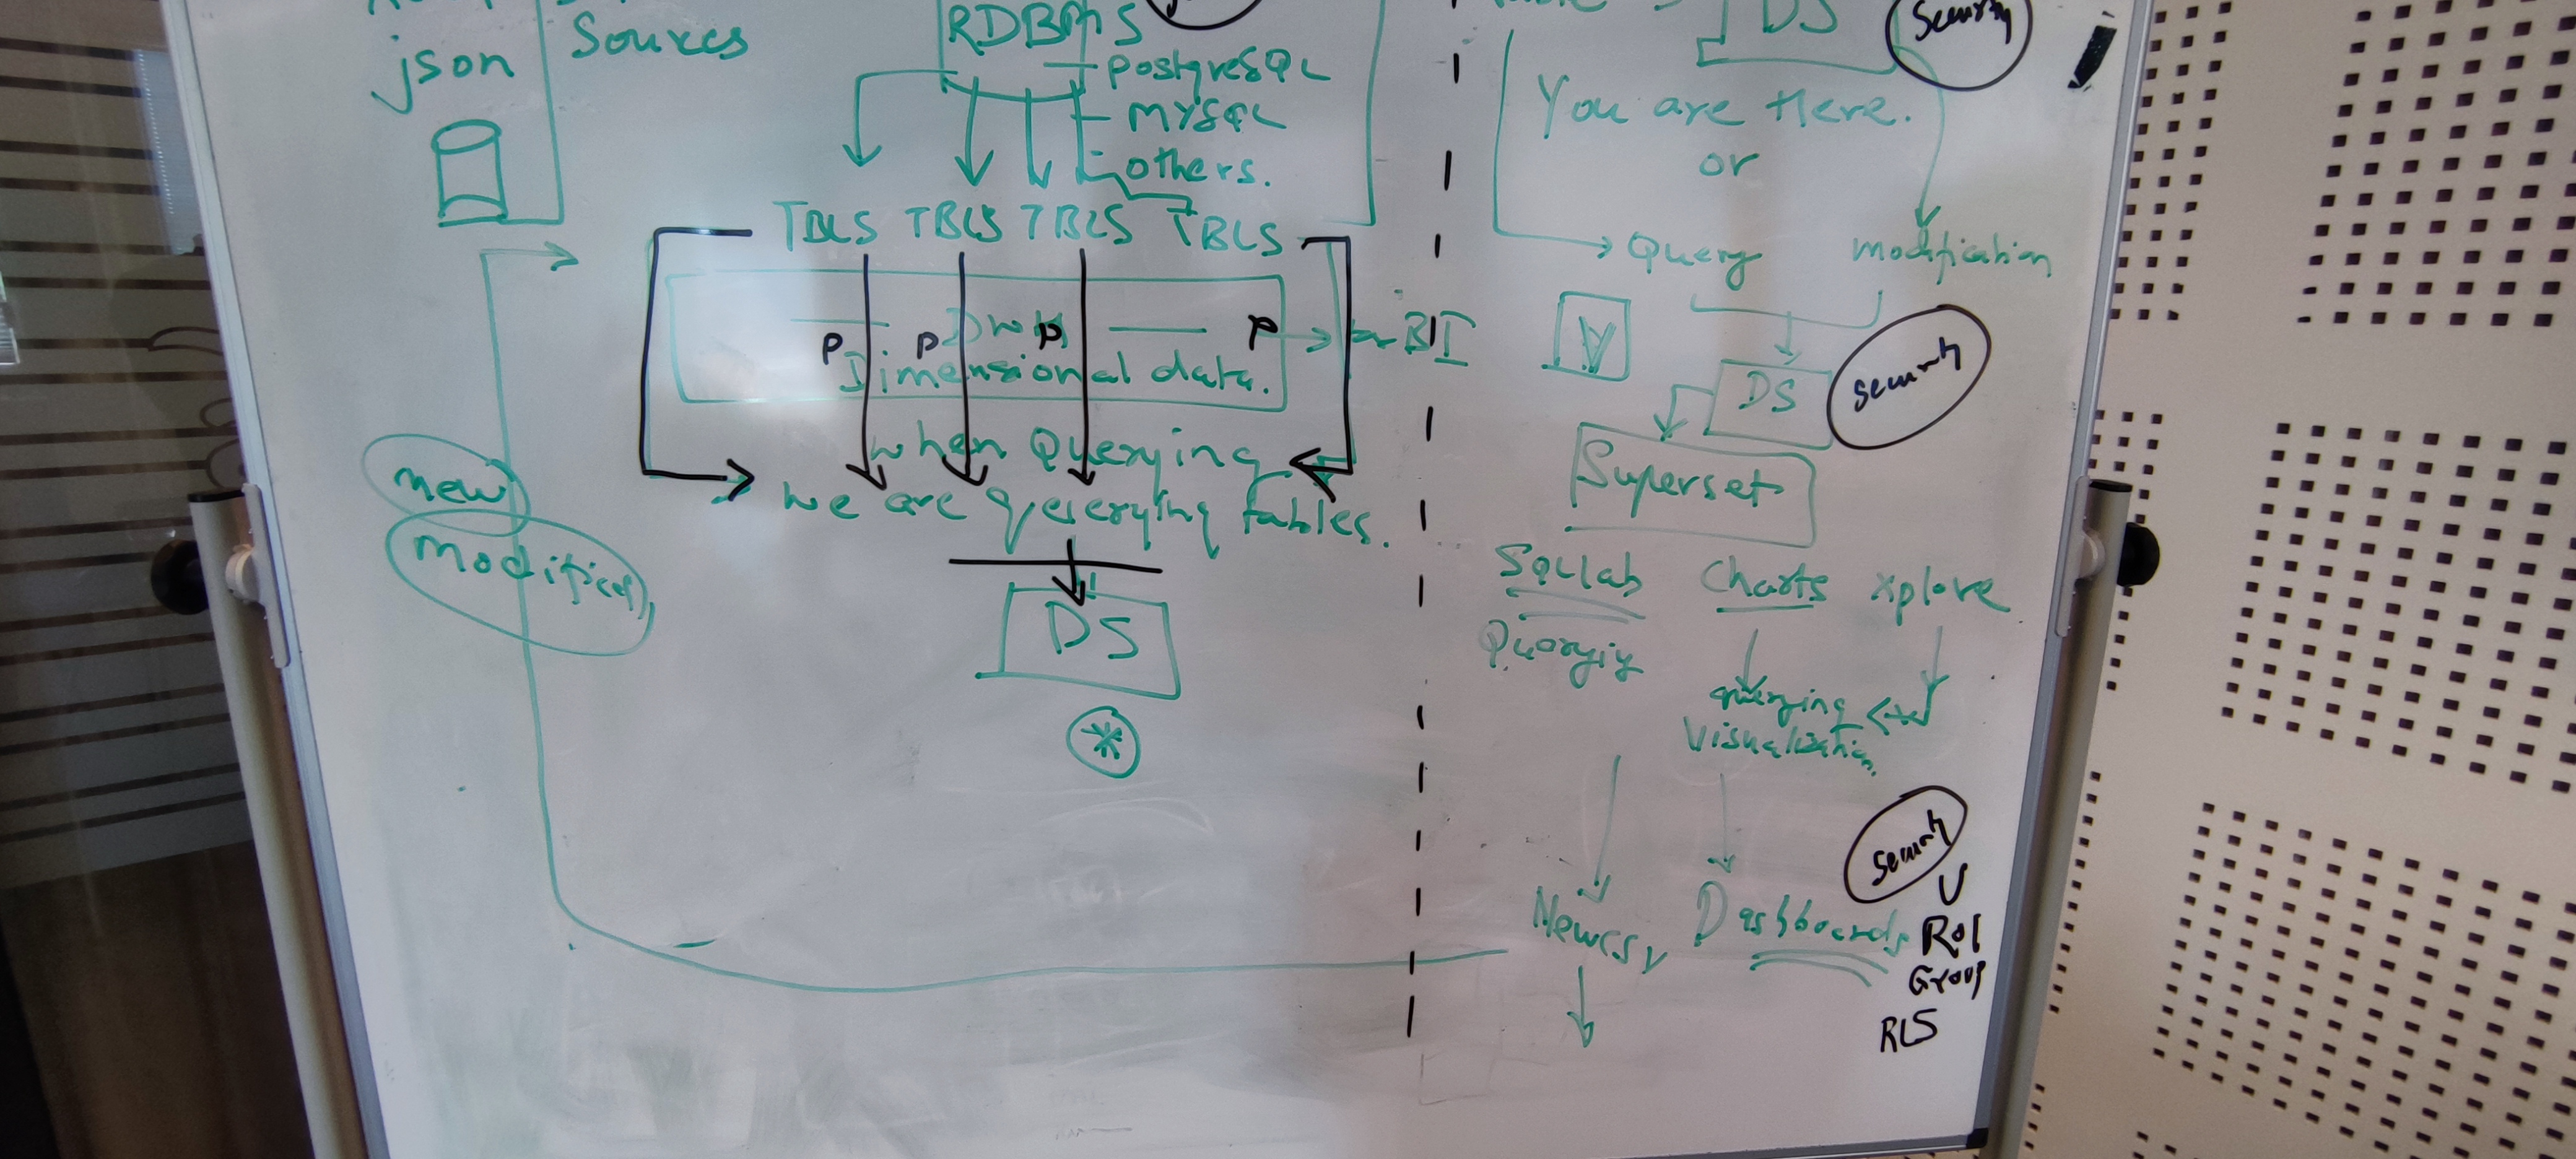 json
Sources
RDBMS
postgreSQL
MYSQL
others.
TBLS TBLS TBLS TBLS
DWH
P P P P
Dimensional data.
BI
when Querying
we are quierying tables.
DS
*
new
modified
DS
Security
You are Here.
or
Query modification
DS
Security
Superset
SQLlab Charts xplore
Querying
querying
Visualization
Security
New csv Dashboards
U
Rol
Group
RLS